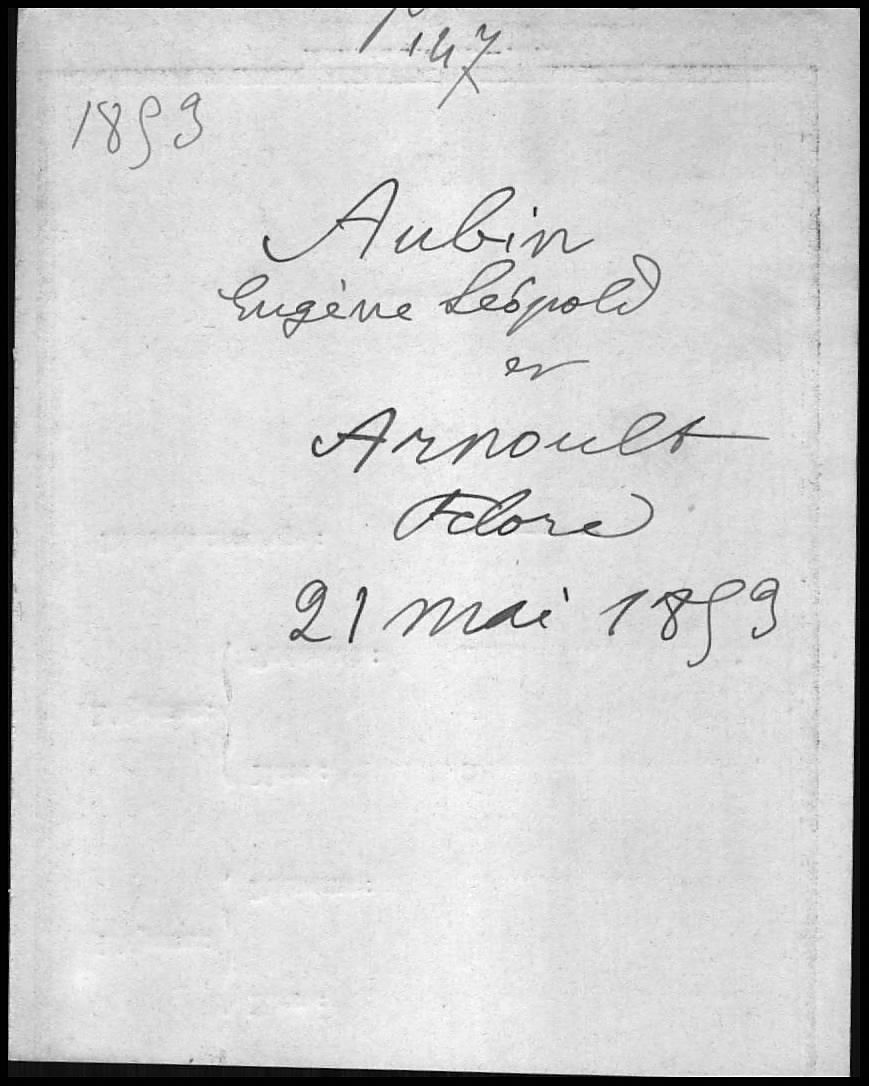 147
1859
Aubin
Eugène Léopold
et
Arnoult
Flore
21 mai 1859